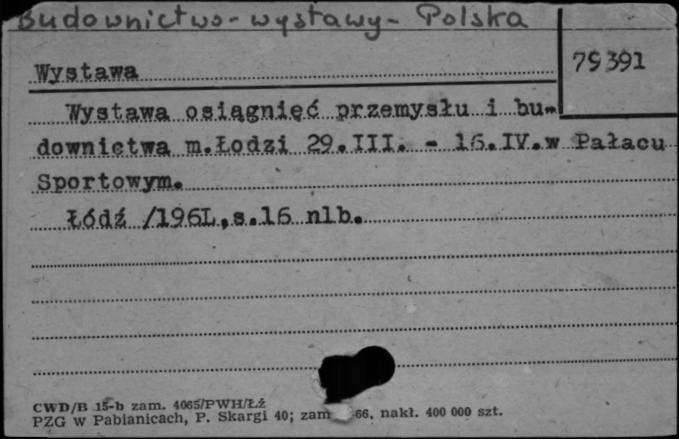 Budownictwo - wystawy - Polska
79391
Wystawa
Wystawa osiągnięć przemysłu i bu-
downictwa m.Łodzi 29.III. - 16.IV.w Pałacu
Sportowym.
Łódź /196L,s.16 nlb.
CWD/B 15-b zam. 4065/PWH/Łź
PZG w Pabianicach, P. Skargi 40; zam 66. nakł. 400 000 szt.